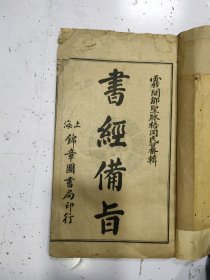 霧閣鄒聖脉梧岡氏纂輯
書經備旨
上海錦章圖書局印行